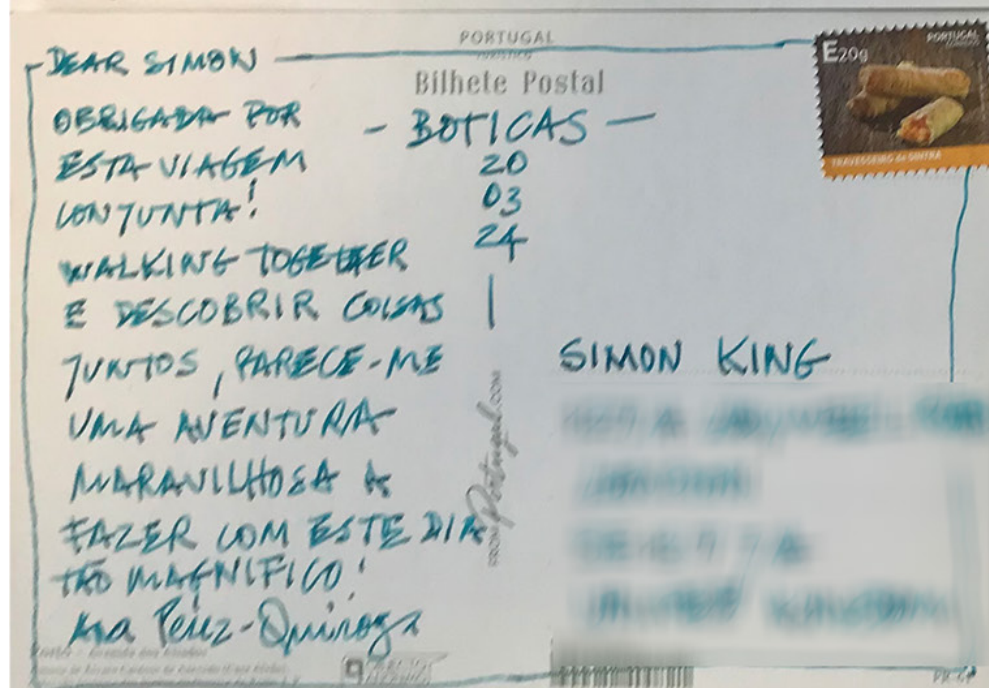 PORTUGAL
TURÍSTICO
Bilhete Postal
DEAR SIMON
OBRIGADA POR
ESTA VIAGEM
CONJUNTA!
WALKING TOGETHER
E DESCOBRIR COISAS
JUNTOS, PARECE-ME
UMA AVENTURA
MARAVILHOSA A
FAZER COM ESTE DIA
TÃO MAGNIFICO!
Ana Pérez-Quiroga
- BOTICAS -
20
03
24
FROM Portugal.COM
E20g
PORTUGAL
TRAVESSEIRO de SINTRA
SIMON KING